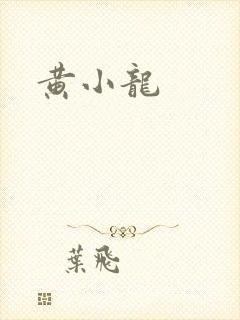 黄小龍
葉飛